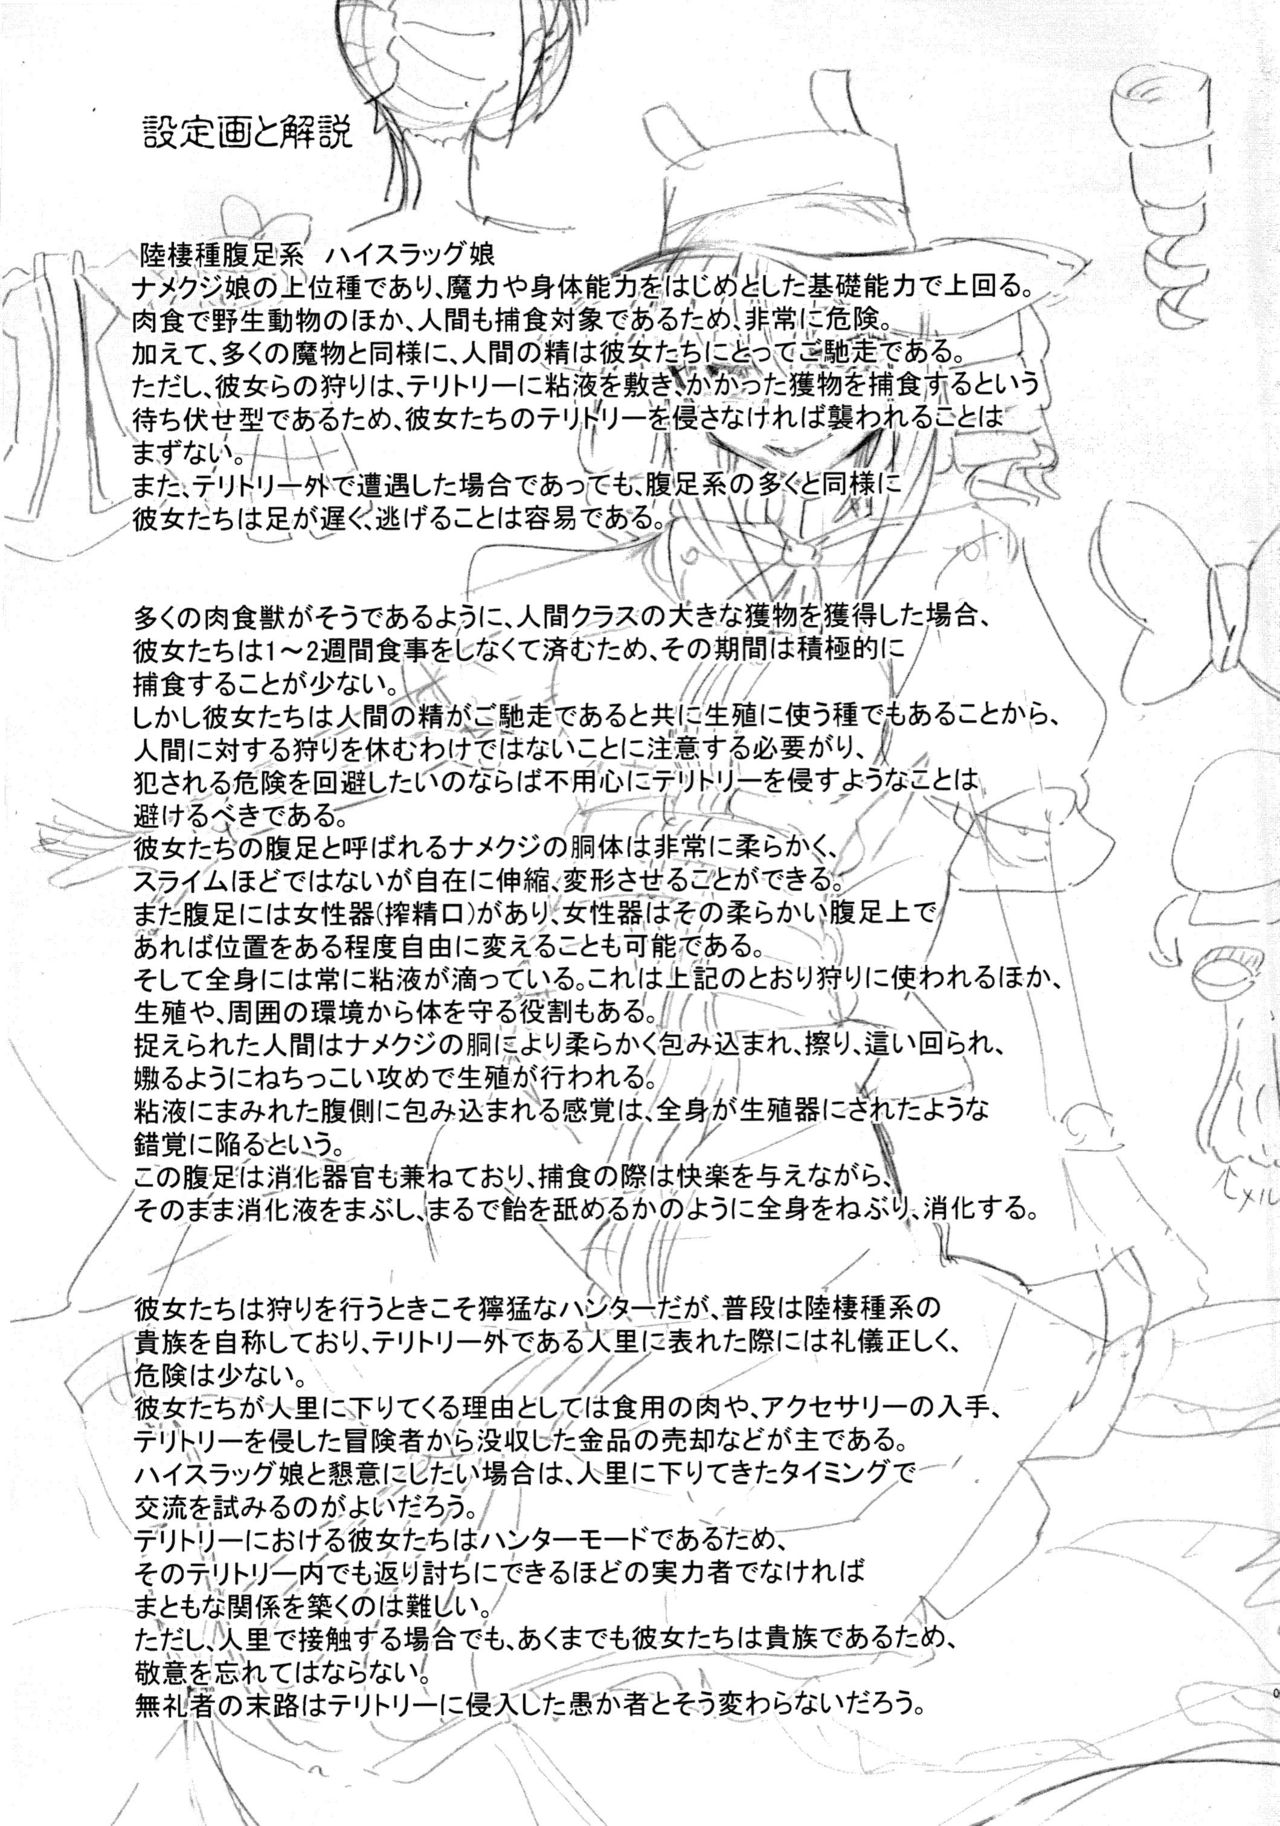 設定画と解説
陸棲種腹足系　ハイスラッグ娘
ナメクジ娘の上位種であり、魔力や身体能力をはじめとした基礎能力で上回る。
肉食で野生動物のほか、人間も捕食対象であるため、非常に危険。
加えて、多くの魔物と同様に、人間の精は彼女たちにとってご馳走である。
ただし、彼女らの狩りは、テリトリーに粘液を敷き、かかった獲物を捕食するという
待ち伏せ型であるため、彼女たちのテリトリーを侵さなければ襲われることは
まずない。
また、テリトリー外で遭遇した場合であっても、腹足系の多くと同様に
彼女たちは足が遅く、逃げることは容易である。
多くの肉食獣がそうであるように、人間クラスの大きな獲物を獲得した場合、
彼女たちは1～2週間食事をしなくて済むため、その期間は積極的に
捕食することが少ない。
しかし彼女たちは人間の精がご馳走であると共に生殖に使う種でもあることから、
人間に対する狩りを休むわけではないことに注意する必要がり、
犯される危険を回避したいのならば不用心にテリトリーを侵すようなことは
避けるべきである。
彼女たちの腹足と呼ばれるナメクジの胴体は非常に柔らかく、
スライムほどではないが自在に伸縮、変形させることができる。
また腹足には女性器(搾精口)があり、女性器はその柔らかい腹足上で
あれば位置をある程度自由に変えることも可能である。
そして全身には常に粘液が滴っている。これは上記のとおり狩りに使われるほか、
生殖や、周囲の環境から体を守る役割もある。
捉えられた人間はナメクジの胴により柔らかく包み込まれ、擦り、這い回られ、
嫐るようにねちっこい攻めで生殖が行われる。
粘液にまみれた腹側に包み込まれる感覚は、全身が生殖器にされたような
錯覚に陥るという。
この腹足は消化器官も兼ねており、捕食の際は快楽を与えながら、
そのまま消化液をまぶし、まるで飴を舐めるかのように全身をねぶり、消化する。
彼女たちは狩りを行うときこそ獰猛なハンターだが、普段は陸棲種系の
貴族を自称しており、テリトリー外である人里に表れた際には礼儀正しく、
危険は少ない。
彼女たちが人里に下りてくる理由としては食用の肉や、アクセサリーの入手、
テリトリーを侵した冒険者から没収した金品の売却などが主である。
ハイスラッグ娘と懇意にしたい場合は、人里に下りてきたタイミングで
交流を試みるのがよいだろう。
テリトリーにおける彼女たちはハンターモードであるため、
そのテリトリー内でも返り討ちにできるほどの実力者でなければ
まともな関係を築くのは難しい。
ただし、人里で接触する場合でも、あくまでも彼女たちは貴族であるため、
敬意を忘れてはならない。
無礼者の末路はテリトリーに侵入した愚か者とそう変わらないだろう。